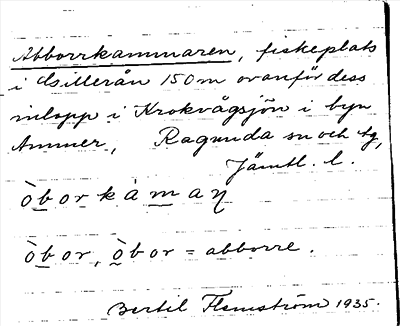 Abborrkammaren, fiskeplats
i Gsillerån 150 m ovanför dess
inlopp i Krokvågsjön i byn
Ammer, Ragunda sn och tg,
Jämtl. l.
òborkàmaŋ
òbor, òbor = abborre.
Bertil Flemström 1935.